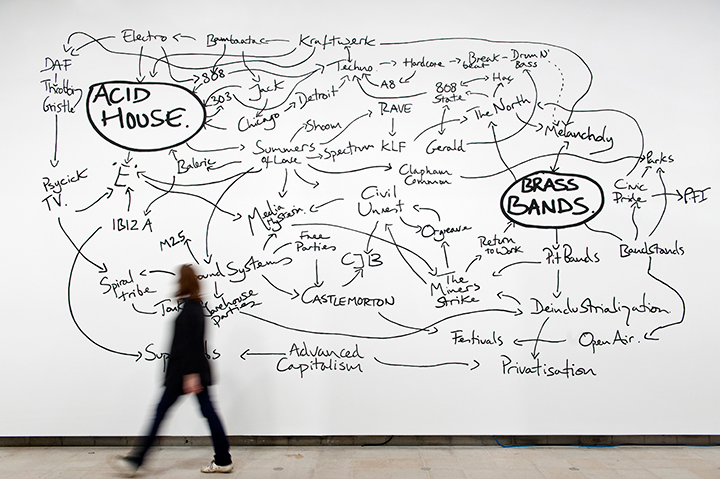 Electro
Bambaataa
Kraftwerk
DAF
Throbbing
Gristle
808
Techno
Hardcore
Break
beat
Drum N'
Bass
ACID
HOUSE.
303
Jack
Detroit
A8
808
State
Hac
Chicago
Shoom
RAVE
The North
Melancholy
Summers
of Love
Spectrum
KLF
Gerald
Baleric
Clapham
Common
Parks
Psycick
TV.
'E'
BRASS
BANDS.
Civic
Pride
PFI
IBIZA
Media
Hysteria
Civil
Unrest
Orgreave
M25
Free
Parties
CJB
Return
to Work
Pit Bands
Bandstands
Spiral
tribe
Sound Systems
The
Miners
Strike
Warehouse
Parties
CASTLEMORTON
Deindustrialization
Festivals
Open Air.
Advanced
Capitalism
Privatisation